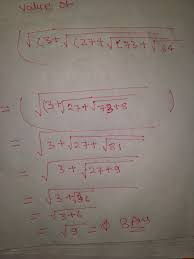 value of
√(3+√(27+√(73+√64
= √(3+√27+√73+8
= √3+√27+√81
= √3+√27+9
= √3+√36
= √3+6
= √9 = 3 Ans